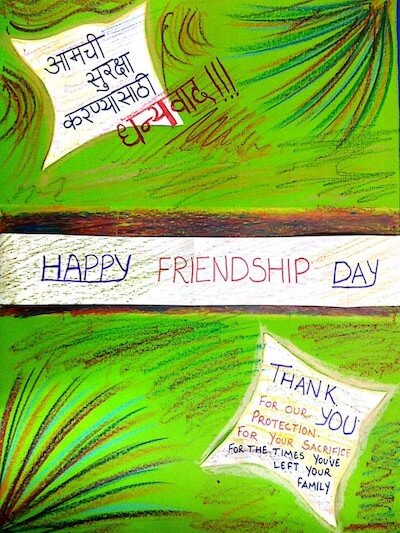 आमची
सुरक्षा
करण्यासाठी
धन्यवाद!!!
HAPPY FRIENDSHIP DAY
THANK
YOU
FOR OUR
PROTECTION.
FOR YOUR SACRIFICE
FOR THE TIMES YOU'VE
LEFT YOUR
FAMILY